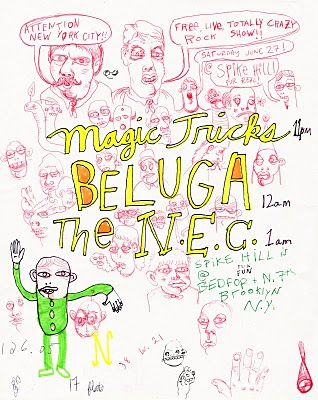 ATTENTION
NEW YORK
CITY!!
FREE, LIVE, TOTALLY CRAZY
ROCK SHOW!!
SATURDAY JUNE 27!
@ SPIKE HILL!
FUR REEL!
Magic Tricks 11pm
BELUGA 12am
The N.E.C. 1am
SPIKE HILL IS
FUR
FUN
@
BEDFORD + N. 7th
BROOKLYN
N.Y.
N
126.05
17